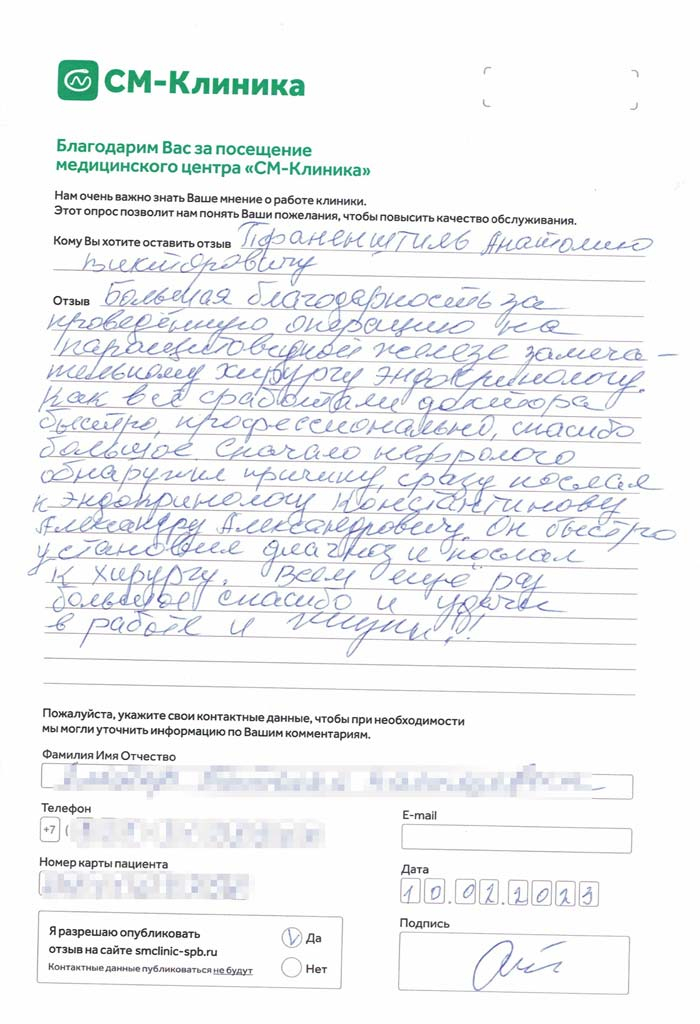 СМ-Клиника
Благодарим Вас за посещение
медицинского центра «СМ-Клиника»
Нам очень важно знать Ваше мнение о работе клиники.
Этот опрос позволит нам понять Ваши пожелания, чтобы повысить качество обслуживания.
Кому Вы хотите оставить отзыв Пфаненштиль Анатолию
Викторовичу
Отзыв Большая благодарность за
проведённую операцию на
паращитовидной железе замеча-
тельному хирургу эндокринологу.
Как все сработали доктора
быстро, профессионально, спасибо
большое. Сначало нефролого
обнаружил причину, сразу послал
к эндокринологу Константинову
Александру Александровичу. Он быстро
установил диагноз и послал
к хирургу. Всем ещё раз
большое спасибо и удачи
в работе и жизни!!!
Пожалуйста, укажите свои контактные данные, чтобы при необходимости
мы могли уточнить информацию по Вашим комментариям.
Фамилия Имя Отчество
Телефон
+7 (
E-mail
Номер карты пациента
Дата
10.02.2023
Я разрешаю опубликовать
отзыв на сайте smclinic-spb.ru
Контактные данные публиковаться не будут
V Да
Нет
Подпись